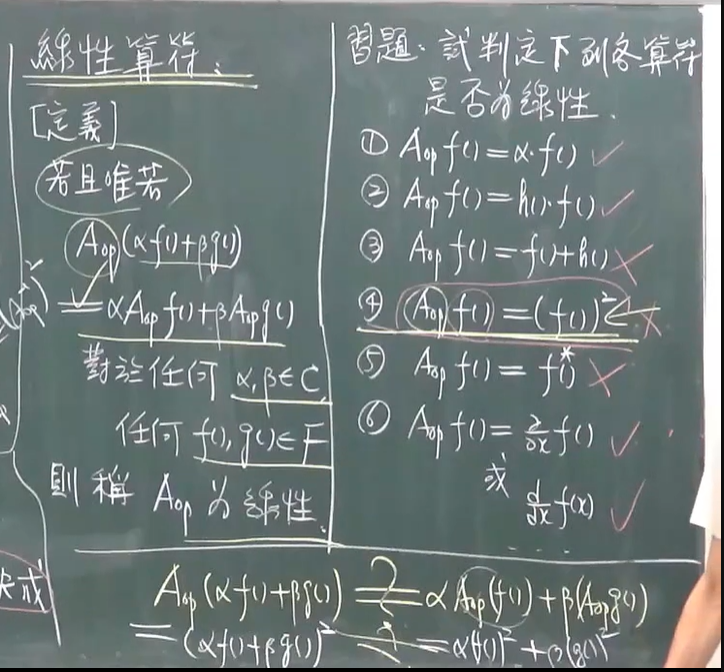 線性算符:
[定義]
若且唯若
Aop(αf()+βg())
=αAop f()+βAop g()
對於任何 α,β∈C
任何 f(),g()∈F
則稱 Aop 為線性.
習題:試判定下列各算符
是否為線性.
① Aop f()=α·f() ✓
② Aop f()=h()·f() ✓
③ Aop f()=f()+h() ✗
④ Aop f()=(f())² ✗
⑤ Aop f()=f()* ✗
⑥ Aop f()=∂/∂x f() ✓
或
d/dx f(x) ✓
Aop(αf()+βg()) ?= αAop(f())+β(Aop g())
=(αf()+βg())² ≠ =α(f())²+β(g())²